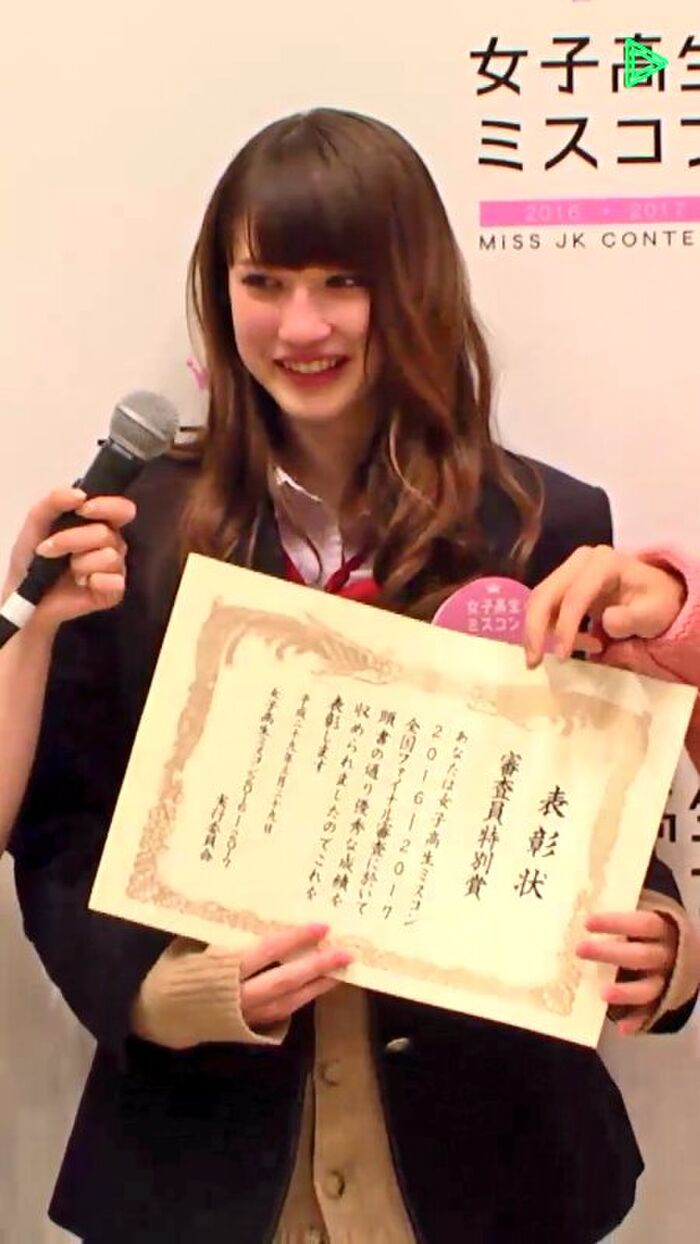 女子高生
ミスコン
2016 - 2017
MISS JK CONTE
女子高生
ミスコン
表彰状
審査員特別賞
あなたは女子高生ミスコン
2016-2017
全国ファイナル審査に於いて
頭書の通り優秀な成績を
収められましたのでこれを
表彰します
平成二十九年三月二十九日
女子高生ミスコン2016-2017
実行委員会